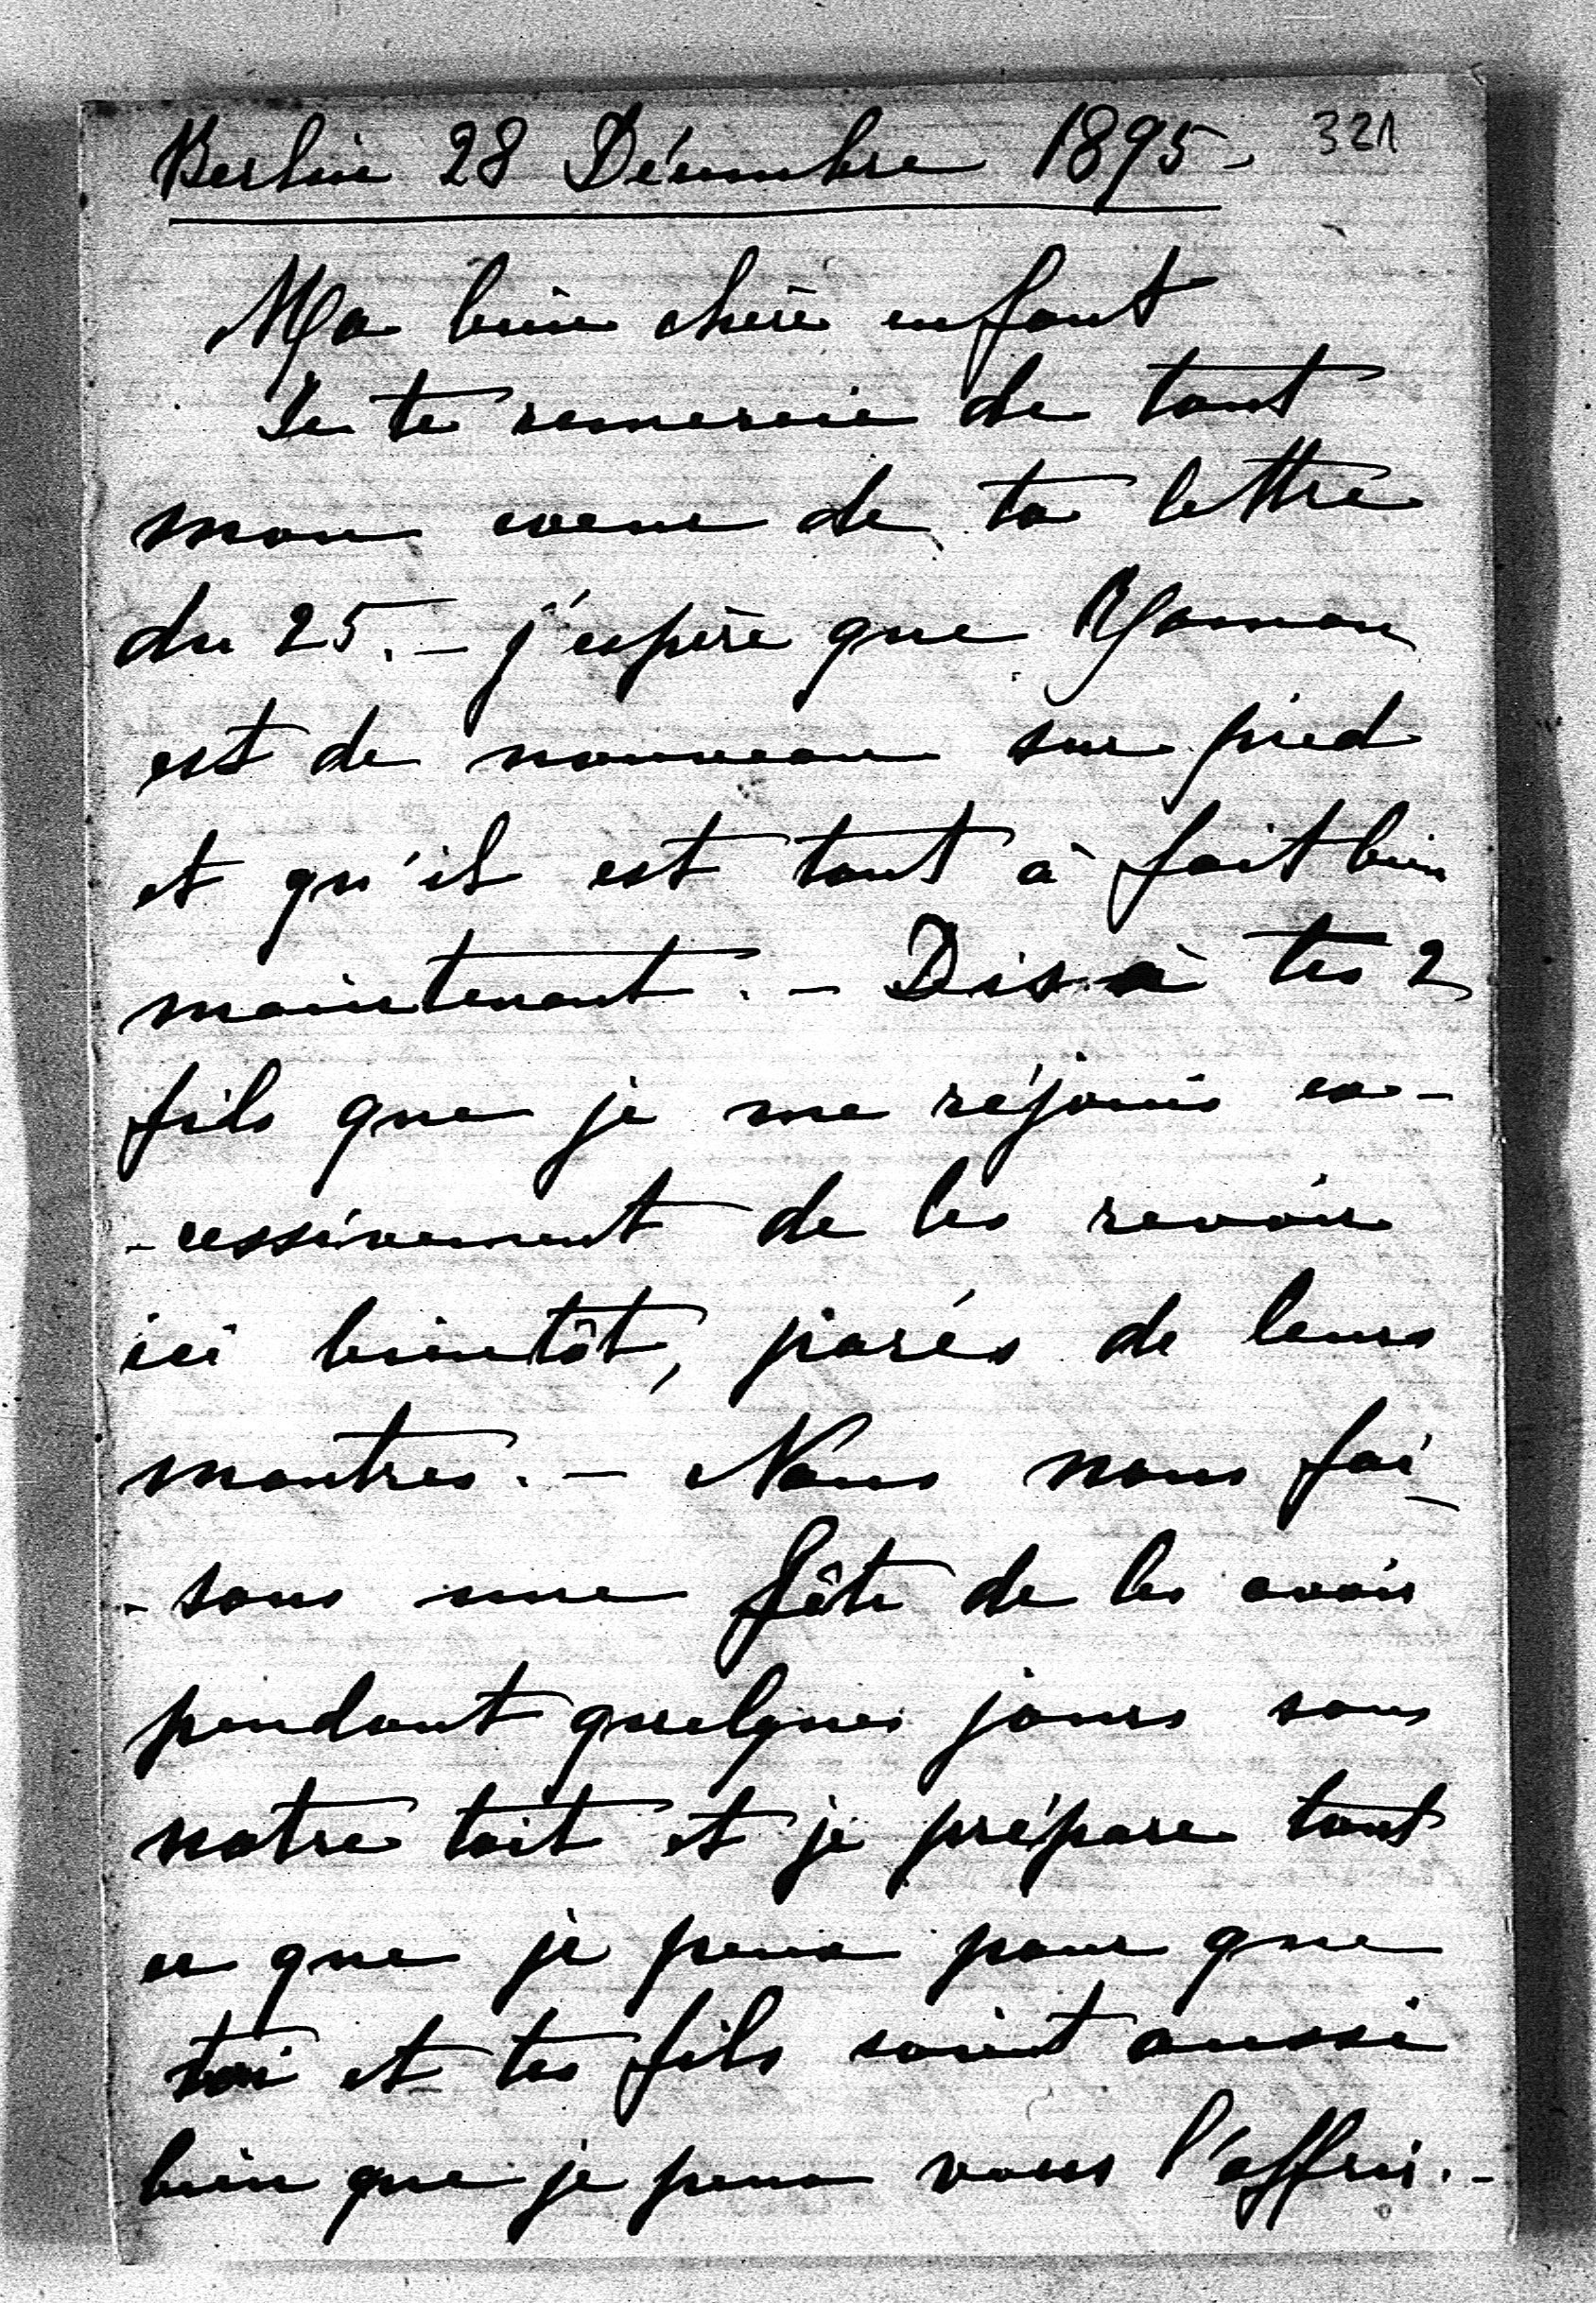 Berlin 28 Décembre 1895 - 321
Ma bien chère enfant
Je te remercie de tout
mon coeur de ta lettre
du 25. - j'espère que
est de nouveau sur pied
et qu'il est tout à fait bien
maintenant. - Dis à tes 2
fils que je me réjouis ex-
-cessivement de les revoir
ici bientôt, parés de leurs
montres. - Nous nous fai-
-sons une fête de les avoir
pendant quelques jours sous
notre toit et je prépare tout
ce que je peux pour que
toi et tes fils soient aussi
bien que je peux vous l'offrir. -